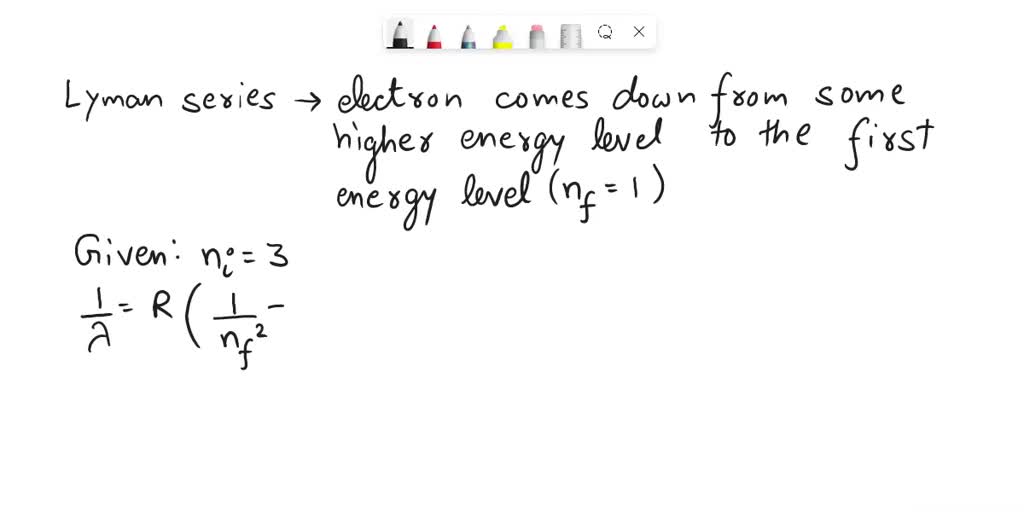 Lyman series → electron comes down from some
higher energy level to the first
energy level (n_f = 1)
Given: n_i = 3
1/λ = R ( 1/n_f² −